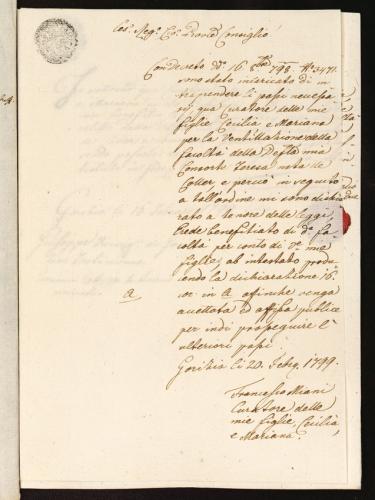 Con Decreto d. 16 798. N. 3471.
sono stato incaricato di in
traprendere li passi necessa
ri, qua curatore delle mie
figlie Cecilia e Mariana
per la Ventillazione della
facoltà della Defta mia
Consorte Teresa nata de
e perciò in seguito
a tall'ordine mi sono dichia
rato a tenore delle leggi,
Erede beneficiato di da fa
coltà per conto di de mie
figlie, ab intestato produ
cendo la dichiarazione
in A affinché venga
accettata ed affissa
per indi proseguire l'
ulteriori passi.
A
Gorizia li 20. Febr. 1799.
Francesco Miani
Curatore delle
mie figlie, Cecilia
e Mariana.